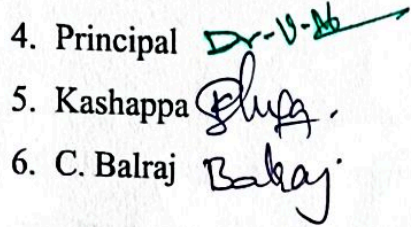 4. Principal Dr-V-
5. Kashappa
6. C. Balraj Balraj